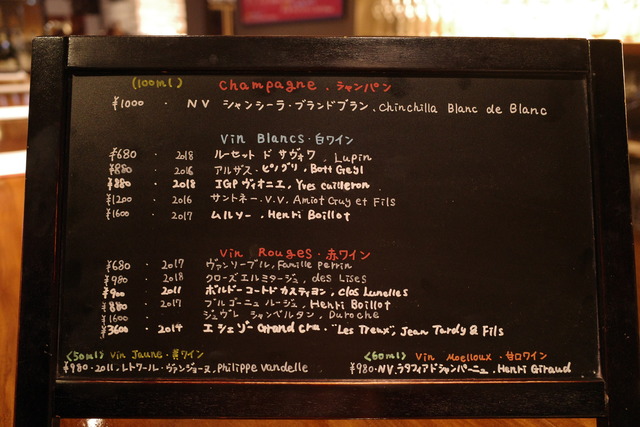 (100ml) Champagne.シャンパン
¥1000 ・ NV シャンシーラ・ブランドブラン.Chinchilla Blanc de Blanc
Vin Blancs・白ワイン
¥680 ・ 2018 ルーセット ド サヴォワ. Lupin
¥880 ・ 2016 アルザス・ピノグリ. Bott Geyl
¥880 ・ 2018 IGP ヴィオニエ, Yves cuilleron
¥1200 ・ 2016 サントネー・V.V. Amiot Guy et Fils
¥1600 ・ 2017 ムルソー. Henri Boillot
Vin Rouges・赤ワイン
¥680 ・ 2017 ヴァンソーブル, Famille perrin
¥980 ・ 2018 クローズエルミタージュ, des Lises
¥900 ・ 2011 ボルドーコートド カスティヨン. Clos Lunelles
¥880 ・ 2017 ブルゴーニュ ルージュ, Henri Boillot
¥1600 ・ ジュヴレ シャンベルタン, Duroche
¥3600 ・ 2014 エシェゾーGrand Cru・"Les Treux", Jean Tardy & Fils
<50ml> Vin Jaune・黄ワイン <60ml> Vin Moelloux・甘口ワイン
¥980・2011.レトワール・ヴァンジョーヌ, Philippe Vandelle ¥980・NV.ラタフィアドシャンパーニュ. Henri Giraud